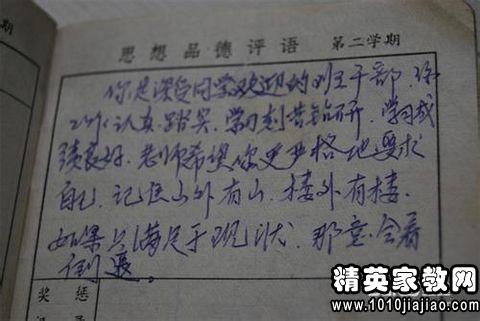 期
思想品德评语 第二学期
你是深受同学欢迎的班干部，你
工作认真踏实，学习刻苦钻研，学习成
绩良好。老师希望你更严格地要求
自己，记住山外有山，楼外有楼，
如果只满足于现状，那意会着
倒退。
奖惩
精英家教网
www.1010jiajiao.com